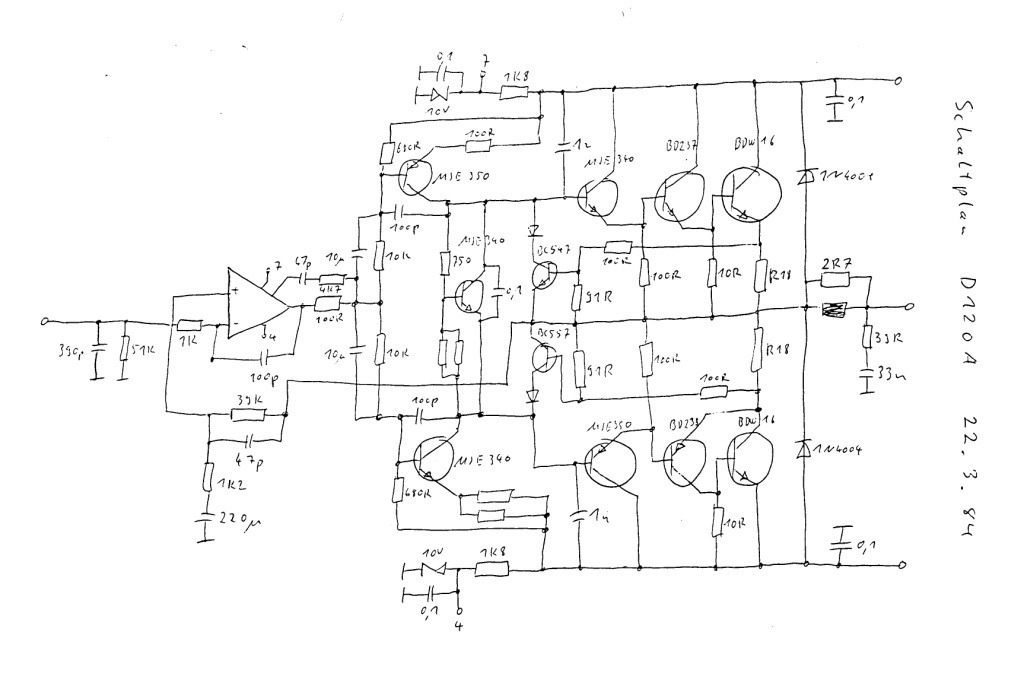 0,1
7
1K8
10V
680R
100R
1n
MJE 350
MJE 340
BD237
BDW 16
0,1
1N4004
100p
MJE 340
10µ
10K
750
BC547
100R
47p
4K7
7
+
-
100R
0,1
91R
100R
10R
R18
2R7
390p
51K
1K
4
100p
10µ
10K
BC557
91R
150R
R18
33R
33n
100R
39K
47p
100p
MJE350
BD238
BDW 16
1K2
220µ
680R
MJE 340
1N4004
1n
10R
10V
1K8
0,1
0,1
4
Schaltplan D120A 22.3.84